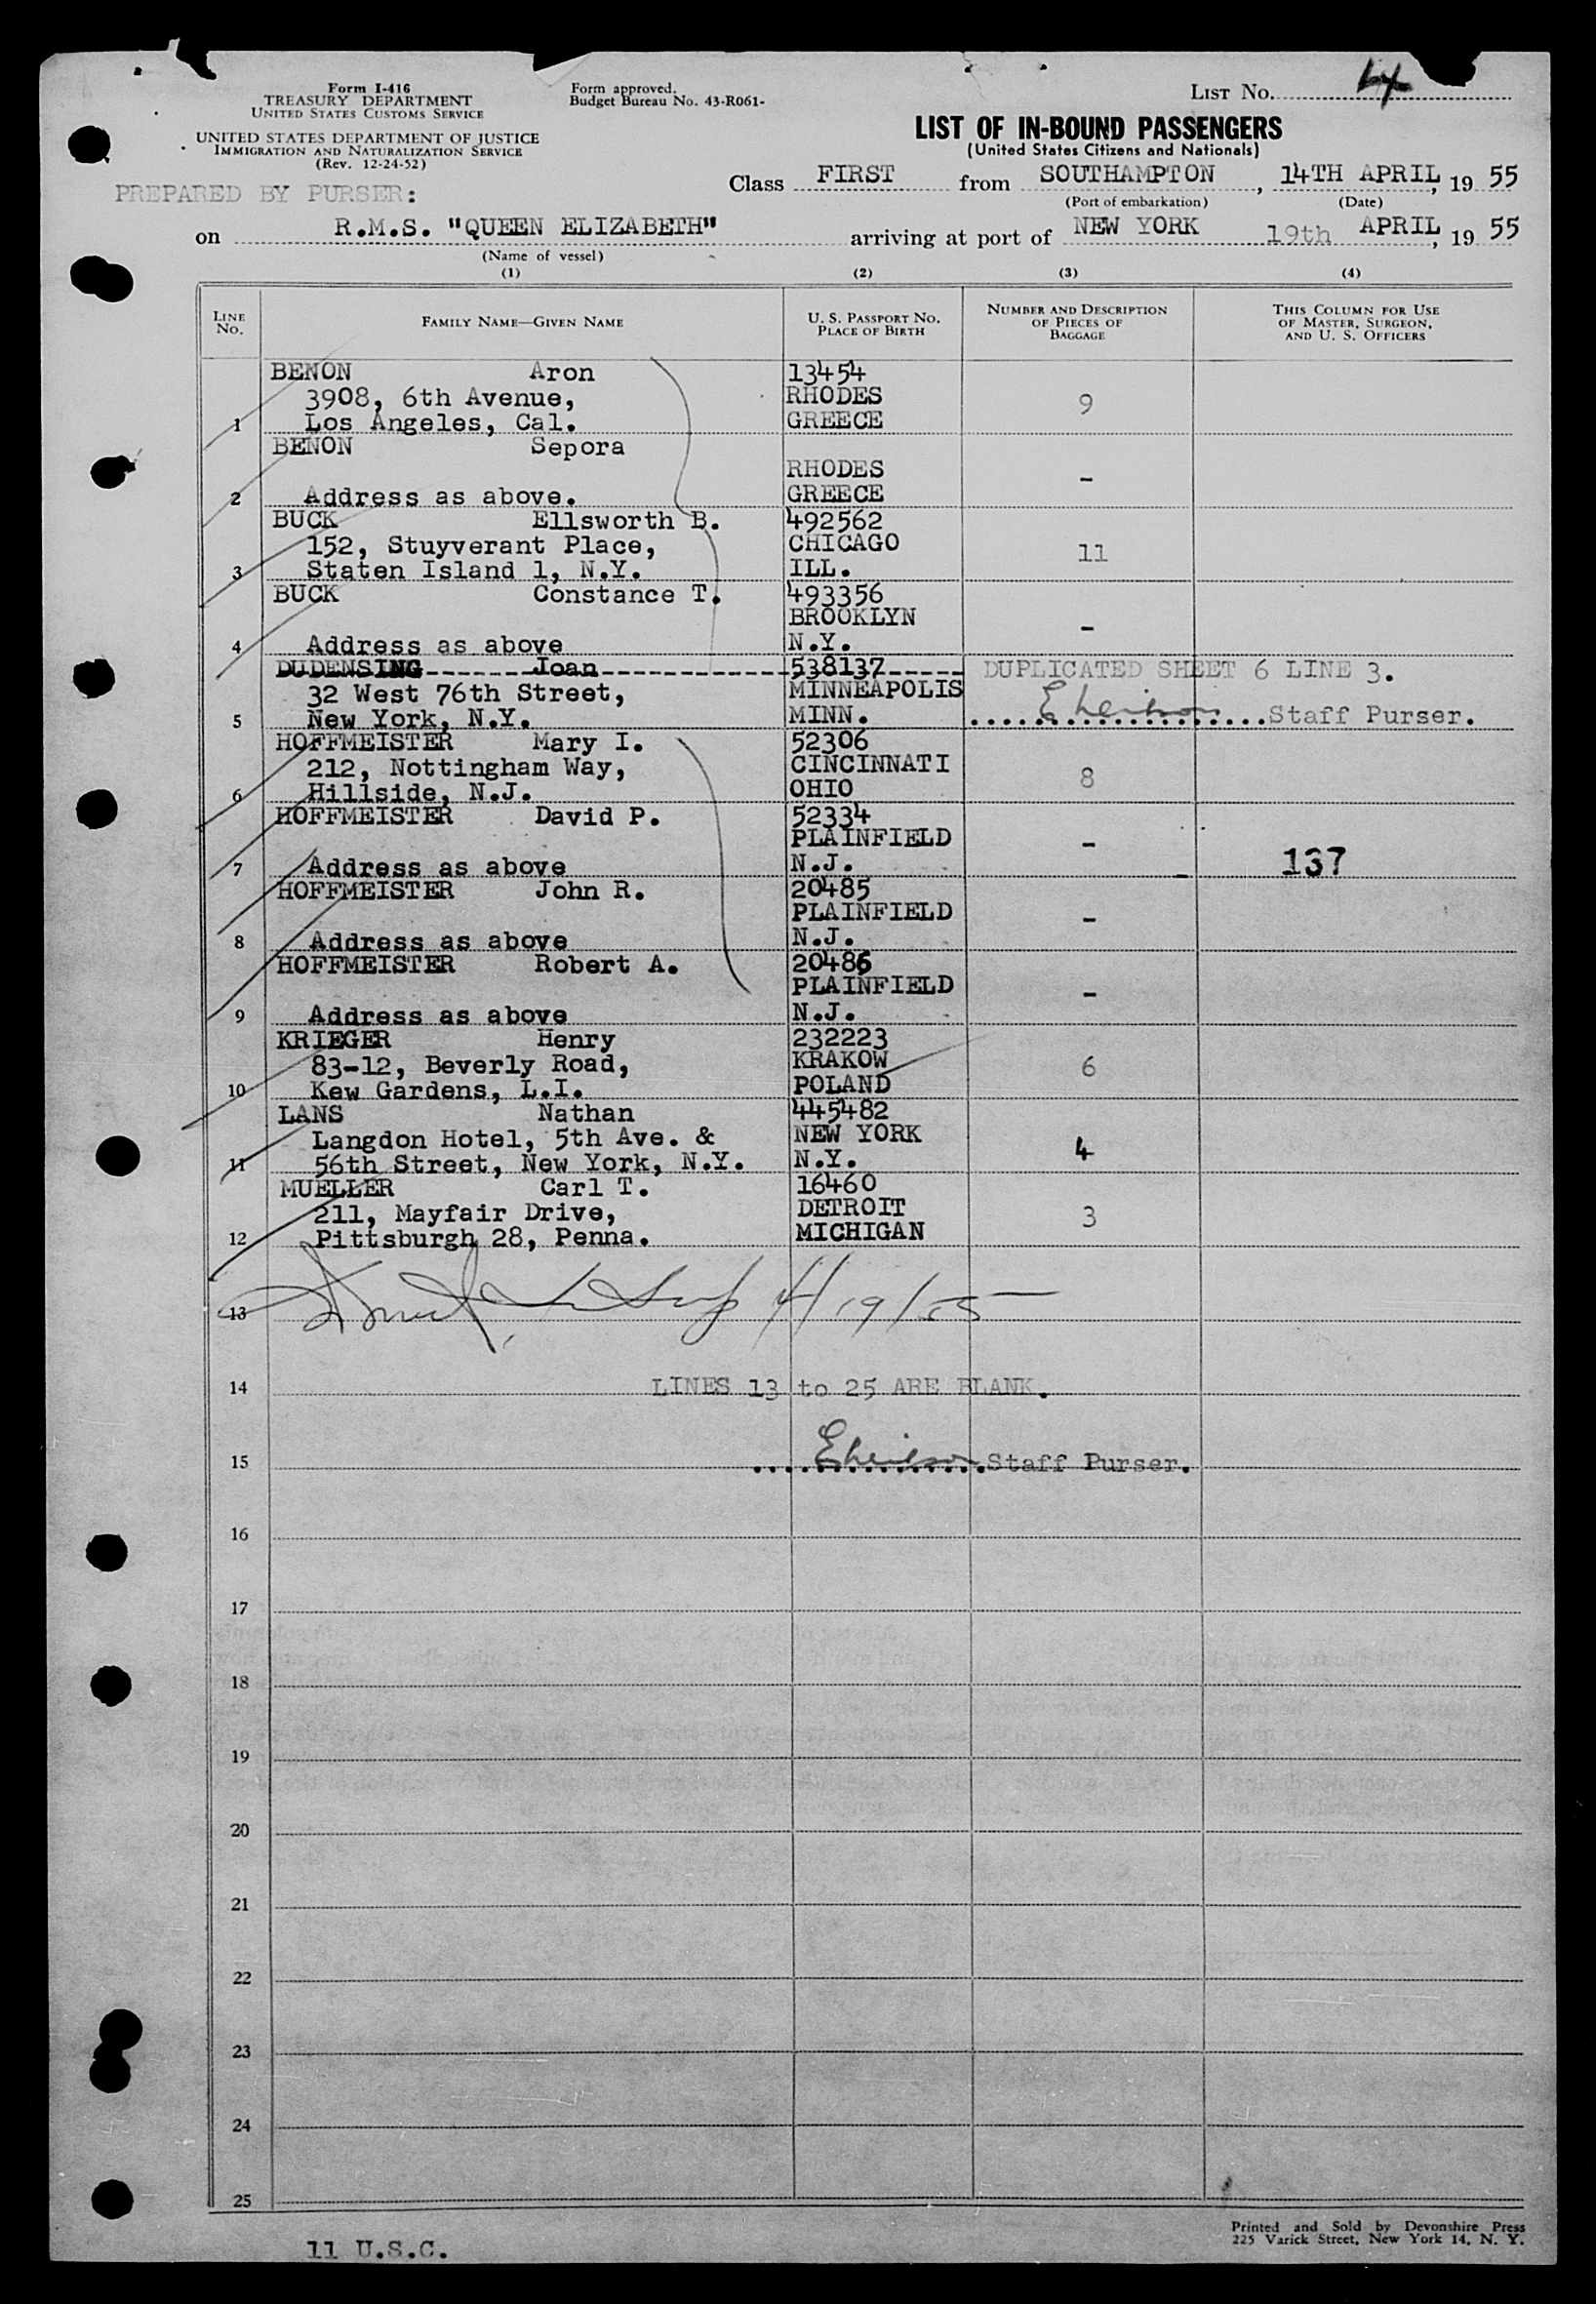 Form I-416
TREASURY DEPARTMENT
UNITED STATES CUSTOMS SERVICE
UNITED STATES DEPARTMENT OF JUSTICE
IMMIGRATION AND NATURALIZATION SERVICE
(Rev. 12-24-52)
Form approved.
Budget Bureau No. 43-R061-
LIST No. 4
LIST OF IN-BOUND PASSENGERS
(United States Citizens and Nationals)
PREPARED BY PURSER:
Class FIRST from SOUTHAMPTON, 14TH APRIL, 19 55
(Port of embarkation) (Date)
on R.M.S. "QUEEN ELIZABETH" arriving at port of NEW YORK 19th APRIL, 19 55
(Name of vessel)
(1) (2) (3) (4)
LINE No. FAMILY NAME—GIVEN NAME U. S. PASSPORT NO. PLACE OF BIRTH NUMBER AND DESCRIPTION OF PIECES OF BAGGAGE THIS COLUMN FOR USE OF MASTER, SURGEON, AND U. S. OFFICERS
BENON Aron 13454
3908, 6th Avenue, RHODES 9
1 Los Angeles, Cal. GREECE
BENON Sepora
RHODES -
2 Address as above. GREECE
BUCK Ellsworth B. 492562
152, Stuyverant Place, CHICAGO 11
3 Staten Island 1, N.Y. ILL.
BUCK Constance T. 493356
BROOKLYN -
4 Address as above N.Y.
DUDENSING Joan 538137 DUPLICATED SHEET 6 LINE 3.
32 West 76th Street, MINNEAPOLIS
5 New York, N.Y. MINN. Staff Purser.
HOFFMEISTER Mary I. 52306
212, Nottingham Way, CINCINNATI 8
6 Hillside, N.J. OHIO
HOFFMEISTER David P. 52334
PLAINFIELD -
7 Address as above N.J. - 137
HOFFMEISTER John R. 20485
PLAINFIELD -
8 Address as above N.J.
HOFFMEISTER Robert A. 20486
PLAINFIELD -
9 Address as above N.J.
KRIEGER Henry 232223
83-12, Beverly Road, KRAKOW 6
10 Kew Gardens, L.I. POLAND
LANS Nathan 445482
Langdon Hotel, 5th Ave. & NEW YORK 4
11 56th Street, New York, N.Y. N.Y.
MUELLER Carl T. 16460
211, Mayfair Drive, DETROIT 3
12 Pittsburgh 28, Penna. MICHIGAN
13 4/19/55
14 LINES 13 to 25 ARE BLANK.
15 Staff Purser.
16
17
18
19
20
21
22
23
24
25
11 U.S.C.
Printed and Sold by Devonshire Press
225 Varick Street, New York 14, N. Y.